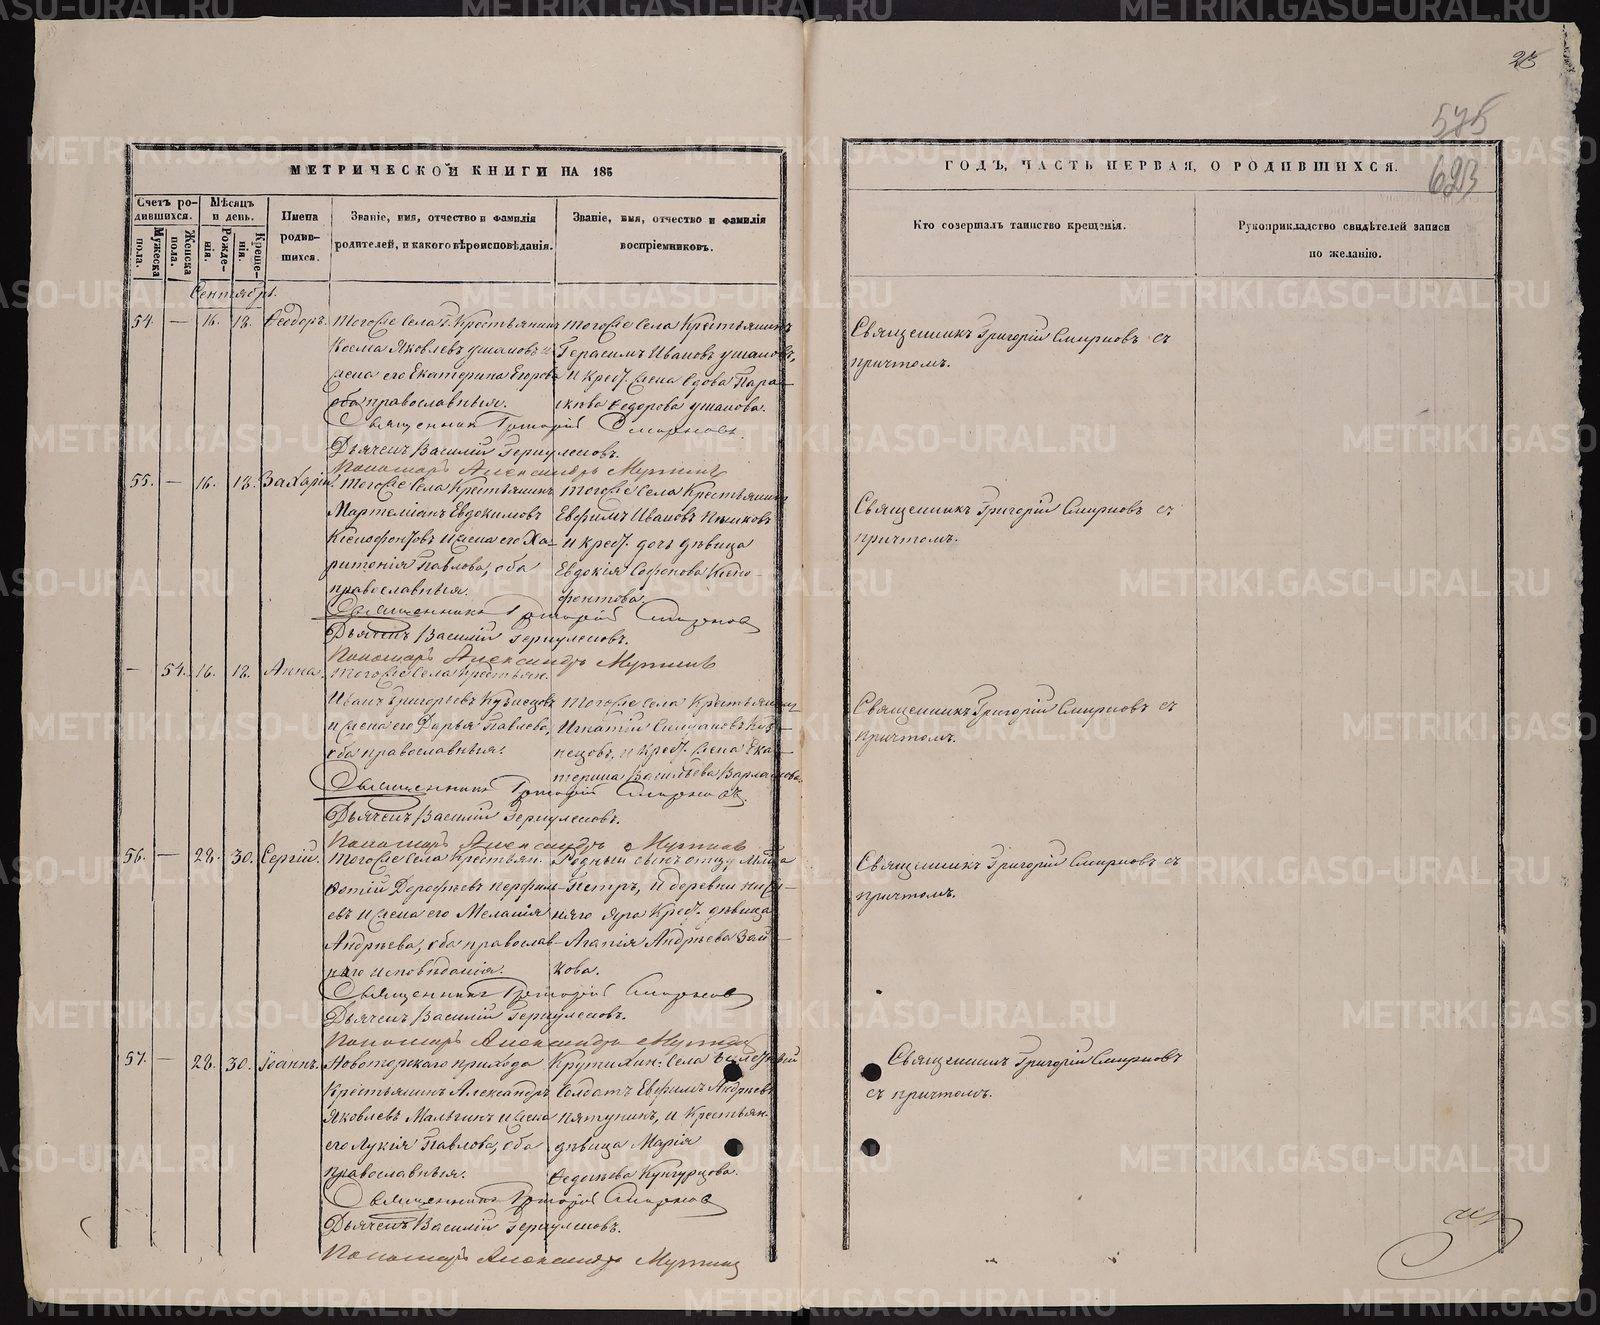 25
575
623
МЕТРИЧЕСКОЙ КНИГИ НА 185
ГОДЪ, ЧАСТЬ ПЕРВАЯ, О РОДИВШИХСЯ.
Счетъ родившихся.
Мужеска пола.
Женска пола.
Мѣсяцъ и день.
Рожденія.
Крещенія.
Имена родившихся.
Званіе, имя, отчество и фамилія родителей, и какого вѣроисповѣданія.
Званіе, имя, отчество и фамилія воспріемниковъ.
Кто совершалъ таинство крещенія.
Рукоприкладство свидѣтелей записи по желанію.
Сентябрь.
54. — 16. 18. Ѳеодоръ.
Тогоже села Крестьянинъ
Косма Яковлевъ Ушаковъ и
жена его Екатерина Егорова
оба православныя.
тогоже села Крестьянинъ
Герасимъ Ивановъ Ушаковъ,
и Крест. жена вдова Пара-
скева Ѳедорова Ушакова.
Священникъ Григорій Смирновъ.
Дьячекъ Василій Геркулесовъ.
Пономарь Александръ
Священникъ Григорій Смирновъ съ
причтомъ.
55. — 16. 18. Захарій.
Тогоже села Крестьянинъ
Мартеміанъ Евдокимовъ
Ксенофонтовъ и жена его Ха-
ритонія Павлова, оба
православныя.
тогоже села Крестьянинъ
Евфимъ Ивановъ
и крест. дочь дѣвица
Евдокія Софонова Ксено-
фонтова.
Священникъ Григорій Смирновъ
Дьячекъ Василій Геркулесовъ.
Пономарь Александръ
Священникъ Григорій Смирновъ съ
причтомъ.
— 54. 16. 18. Анна.
Тогоже села Крестьян.
Иванъ Григорьевъ Кузнецовъ
и жена его Дарья Павлова,
оба православныя.
тогоже села Крестьянинъ
Игнатій Куз-
нецовъ, и Крест. жена Ека-
терина Васильева Варлакова.
Священникъ Григорій Смирновъ.
Дьячекъ Василій Геркулесовъ.
Пономарь Александръ
Священникъ Григорій Смирновъ съ
причтомъ.
56. — 28. 30. Сергій.
Тогоже села Крестьян.
Ѳотій Дороѳеевъ Перфиль-
евъ и жена его Меланія
Андреева, оба православ-
наго исповѣданія.
Родный сынъ отцу
Петръ, и деревни
Яра Крест. дѣвица
Агапія Андреева Зай-
кова.
Священникъ Григорій Смирновъ
Дьячекъ Василій Геркулесовъ.
Пономарь Александръ
Священникъ Григорій Смирновъ съ
причтомъ.
57. — 28. 30. Іоаннъ.
прихода
Крестьянинъ Александръ
Яковлевъ Малыгинъ и жена
его Лукія Павлова, оба
православныя.
села
Солдатъ Евфимъ Андреевъ
Пятунинъ, и Крестьян.
дѣвица Марія
Кунгурцова.
Священникъ Григорій Смирновъ
Дьячекъ Василій Геркулесовъ.
Пономарь Александръ
Священникъ Григорій Смирновъ
съ причтомъ.
METRIKI.GASO-URAL.RU